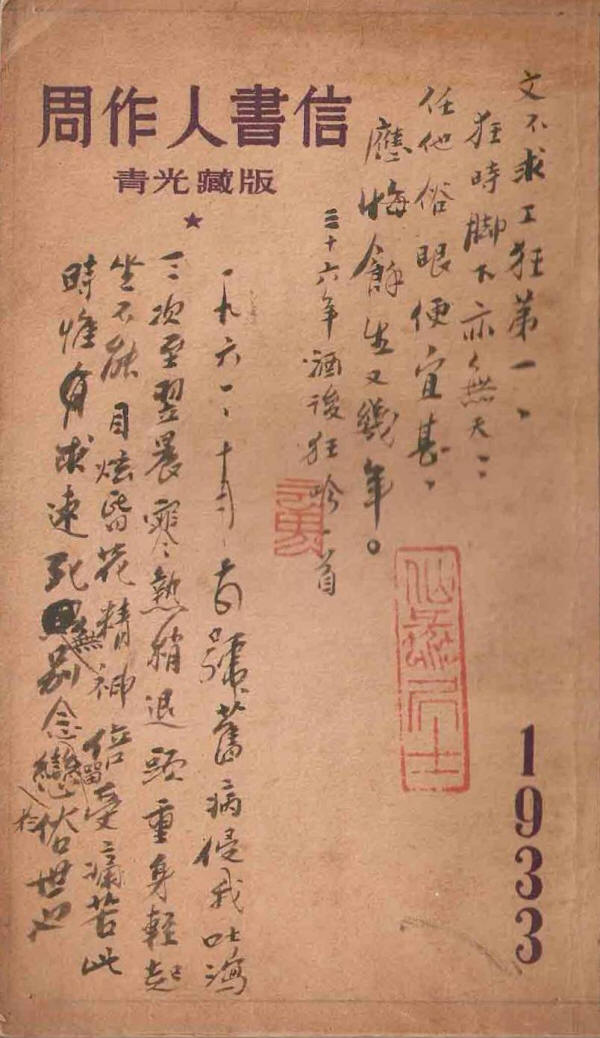 周作人書信
青光藏版
★
文不求工狂第一、
狂時脚下亦無天；
任他俗眼便宜甚、
應悔餘生又幾年。
三十六年酒後狂吟一首
一九六一、十月、旧疆舊病侵我吐瀉
三次至翌晨寒熱稍退頭重身輕起
坐不能目炫昏花精神倍受痛苦此
時惟有求速死無別念留戀於俗世也
居士
1933